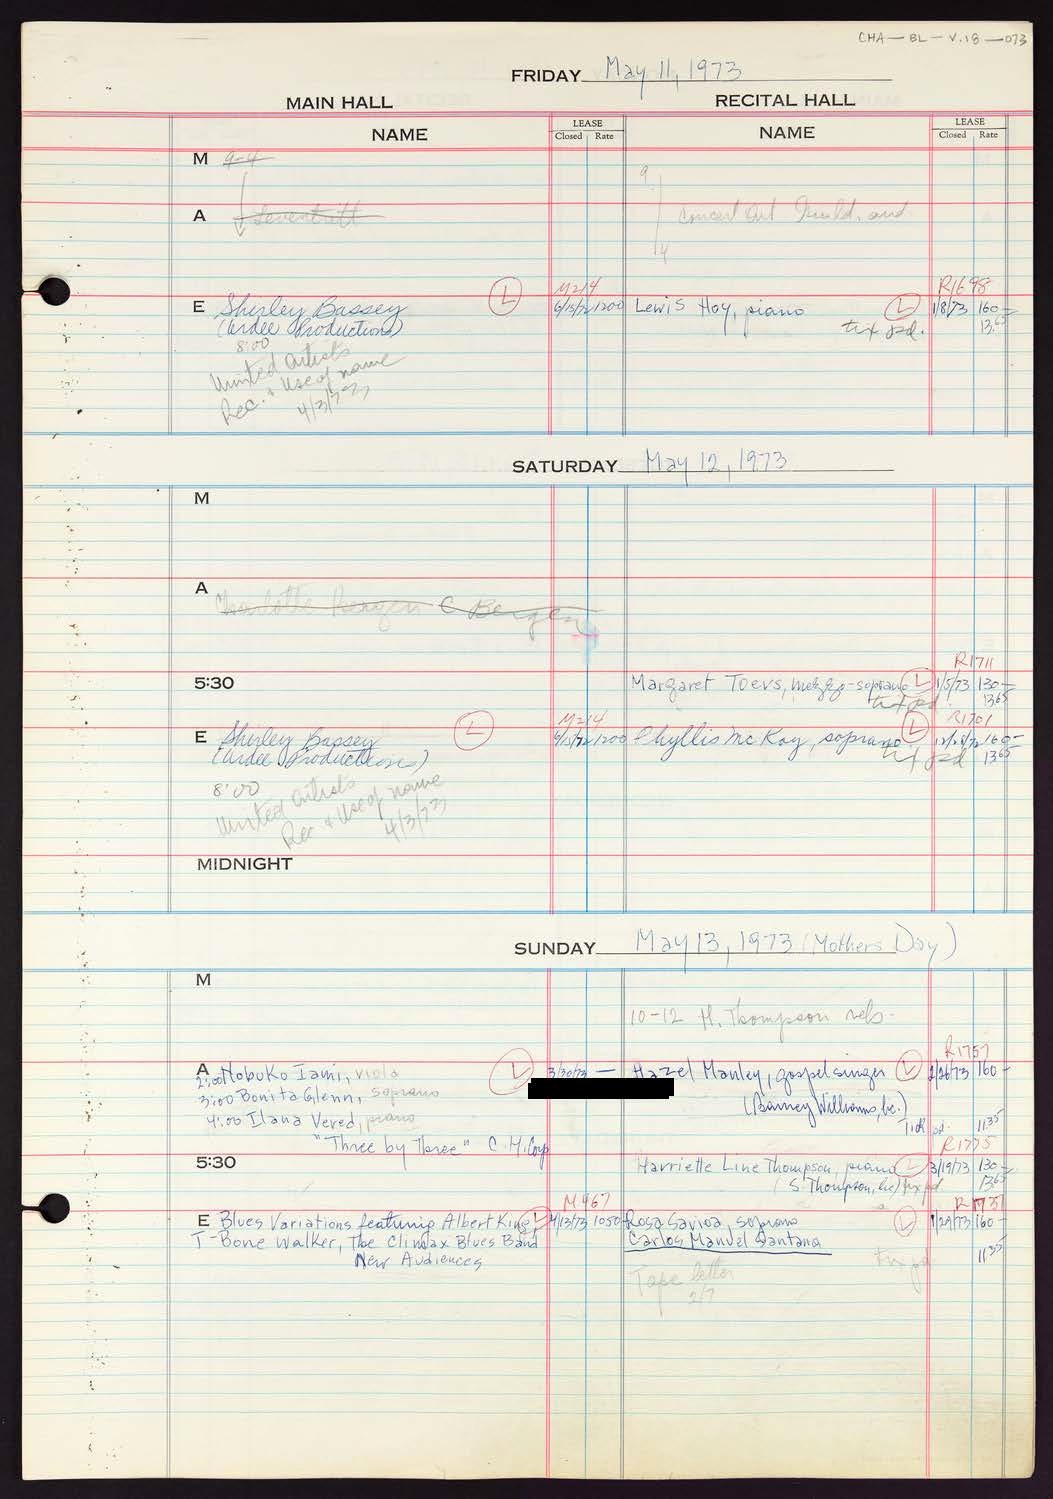 CHA—BL—V.18—073
FRIDAY May 11, 1973
MAIN HALL
RECITAL HALL
NAME
LEASE
Closed Rate
NAME
LEASE
Closed Rate
M 9-4
9
A Leventritt
Concert Art Guild, aud
4
M214
R1698
E Shirley Bassey L 6/15/72 1200 Lewis Hoy, piano L 1/8/73 160—
(Ardee Productions)
tix pd. 13.65
8:00
United Artists
Rec. & Use of name
4/3/73
SATURDAY May 12, 1973
M
A Charlotte Bergen C Bergen
R1711
5:30 Margaret Toevs, mezzo-soprano L 1/5/73 130—
tix pd. 13.65
M214
R1701
E Shirley Bassey L 6/15/72 1200 Phyllis McKay, soprano L 160—
(Ardee Productions)
tix pd 13.65
8:00
United Artists
Rec & Use of name
4/3/73
MIDNIGHT
SUNDAY May 13, 1973 (Mothers Day)
M
10-12 H. Thompson reh.
R1757
A L 3/30/73 — Hazel Manley, gospel singer L 2/26/73 160—
2:00 Nobuko Imai, viola
3:00 Bonita Glenn, soprano
(Barney Williams, Inc.)
4:00 Ilana Vered, piano
pd. 11.35
"Three by Three" C.H.Corp
R1775
5:30 Harriette Line Thompson, piano L 3/19/73 130—
(S. Thompson, Inc) tix pd. 13.65
M467
R1737
E Blues Variations featuring Albert King, L 4/13/73 1050 Rosa Savioa, soprano L 1/29/73 160—
T-Bone Walker, The Climax Blues Band
Carlos Manuel Santana
New Audiences
tix pd 11.35
Tape letter
2/7